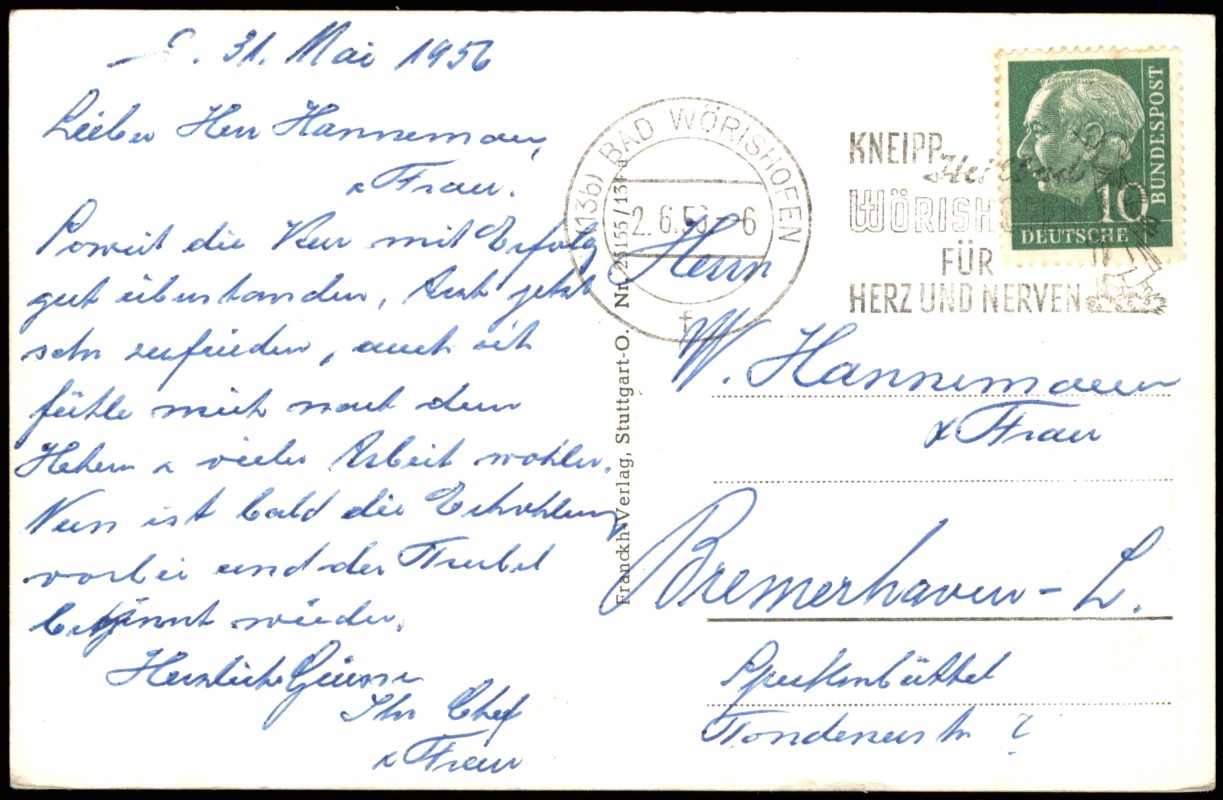 31. Mai 1956
Lieber Herr Hannemann,
& Frau.
Soweit die Kur mit Erfolg
gut überstanden, Arzt jetzt
sehr zufrieden, auch ich
fühle mich nach dem
& vieler Arbeit wohler.
Nun ist bald die Erholung
vorbei und der Trubel
beginnt wieder.
Herzliche Grüsse
Ihr Chef
& Frau
Franckh-Verlag, Stuttgart-O. Nr. 26155/131 a
(13b) BAD WÖRISHOFEN
2.6.56 - 6
f
KNEIPP
Heilbad
WÖRISHOFEN
FÜR
HERZ UND NERVEN
BUNDESPOST
10
DEUTSCHE
Herrn
W. Hannemann
& Frau
Bremerhaven - L.
Speckenbüttel